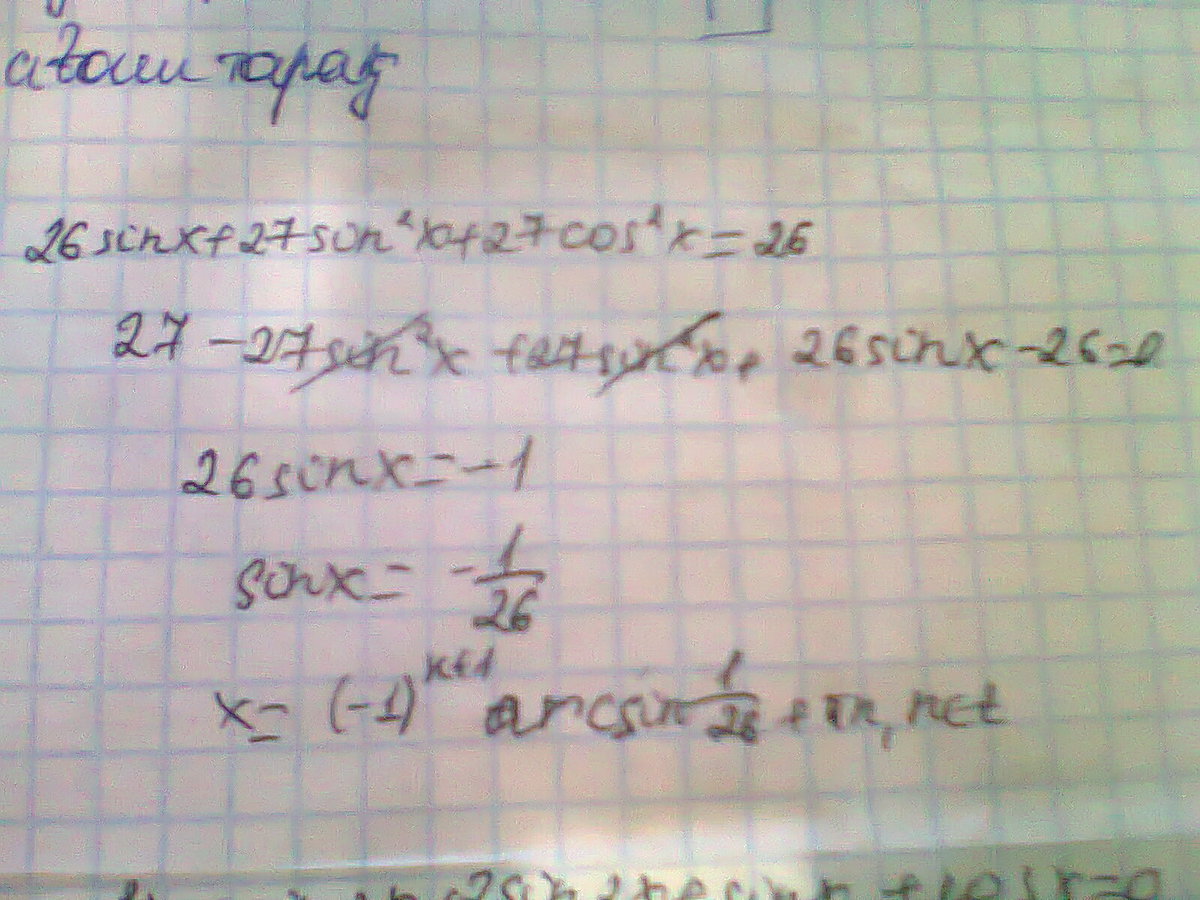 26 sinx + 27 sin²x + 27 cos²x = 26
27 - 27 sin²x + 27 sin²x + 26 sinx - 26 = 0
26 sinx = -1
sinx = - 1/26
x = (-1)ⁿ⁺¹ arcsin 1/26 + πn, n∈Z